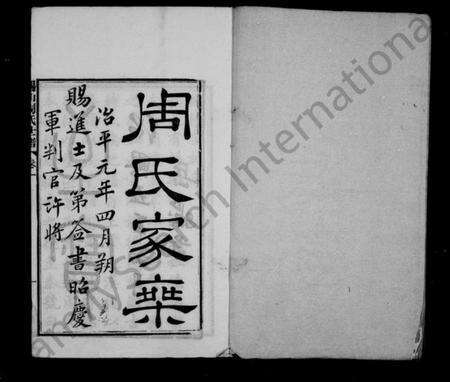 周氏家乘
治平元年四月朔
賜進士及第簽書昭慶
軍判官許將
FamilySearch International